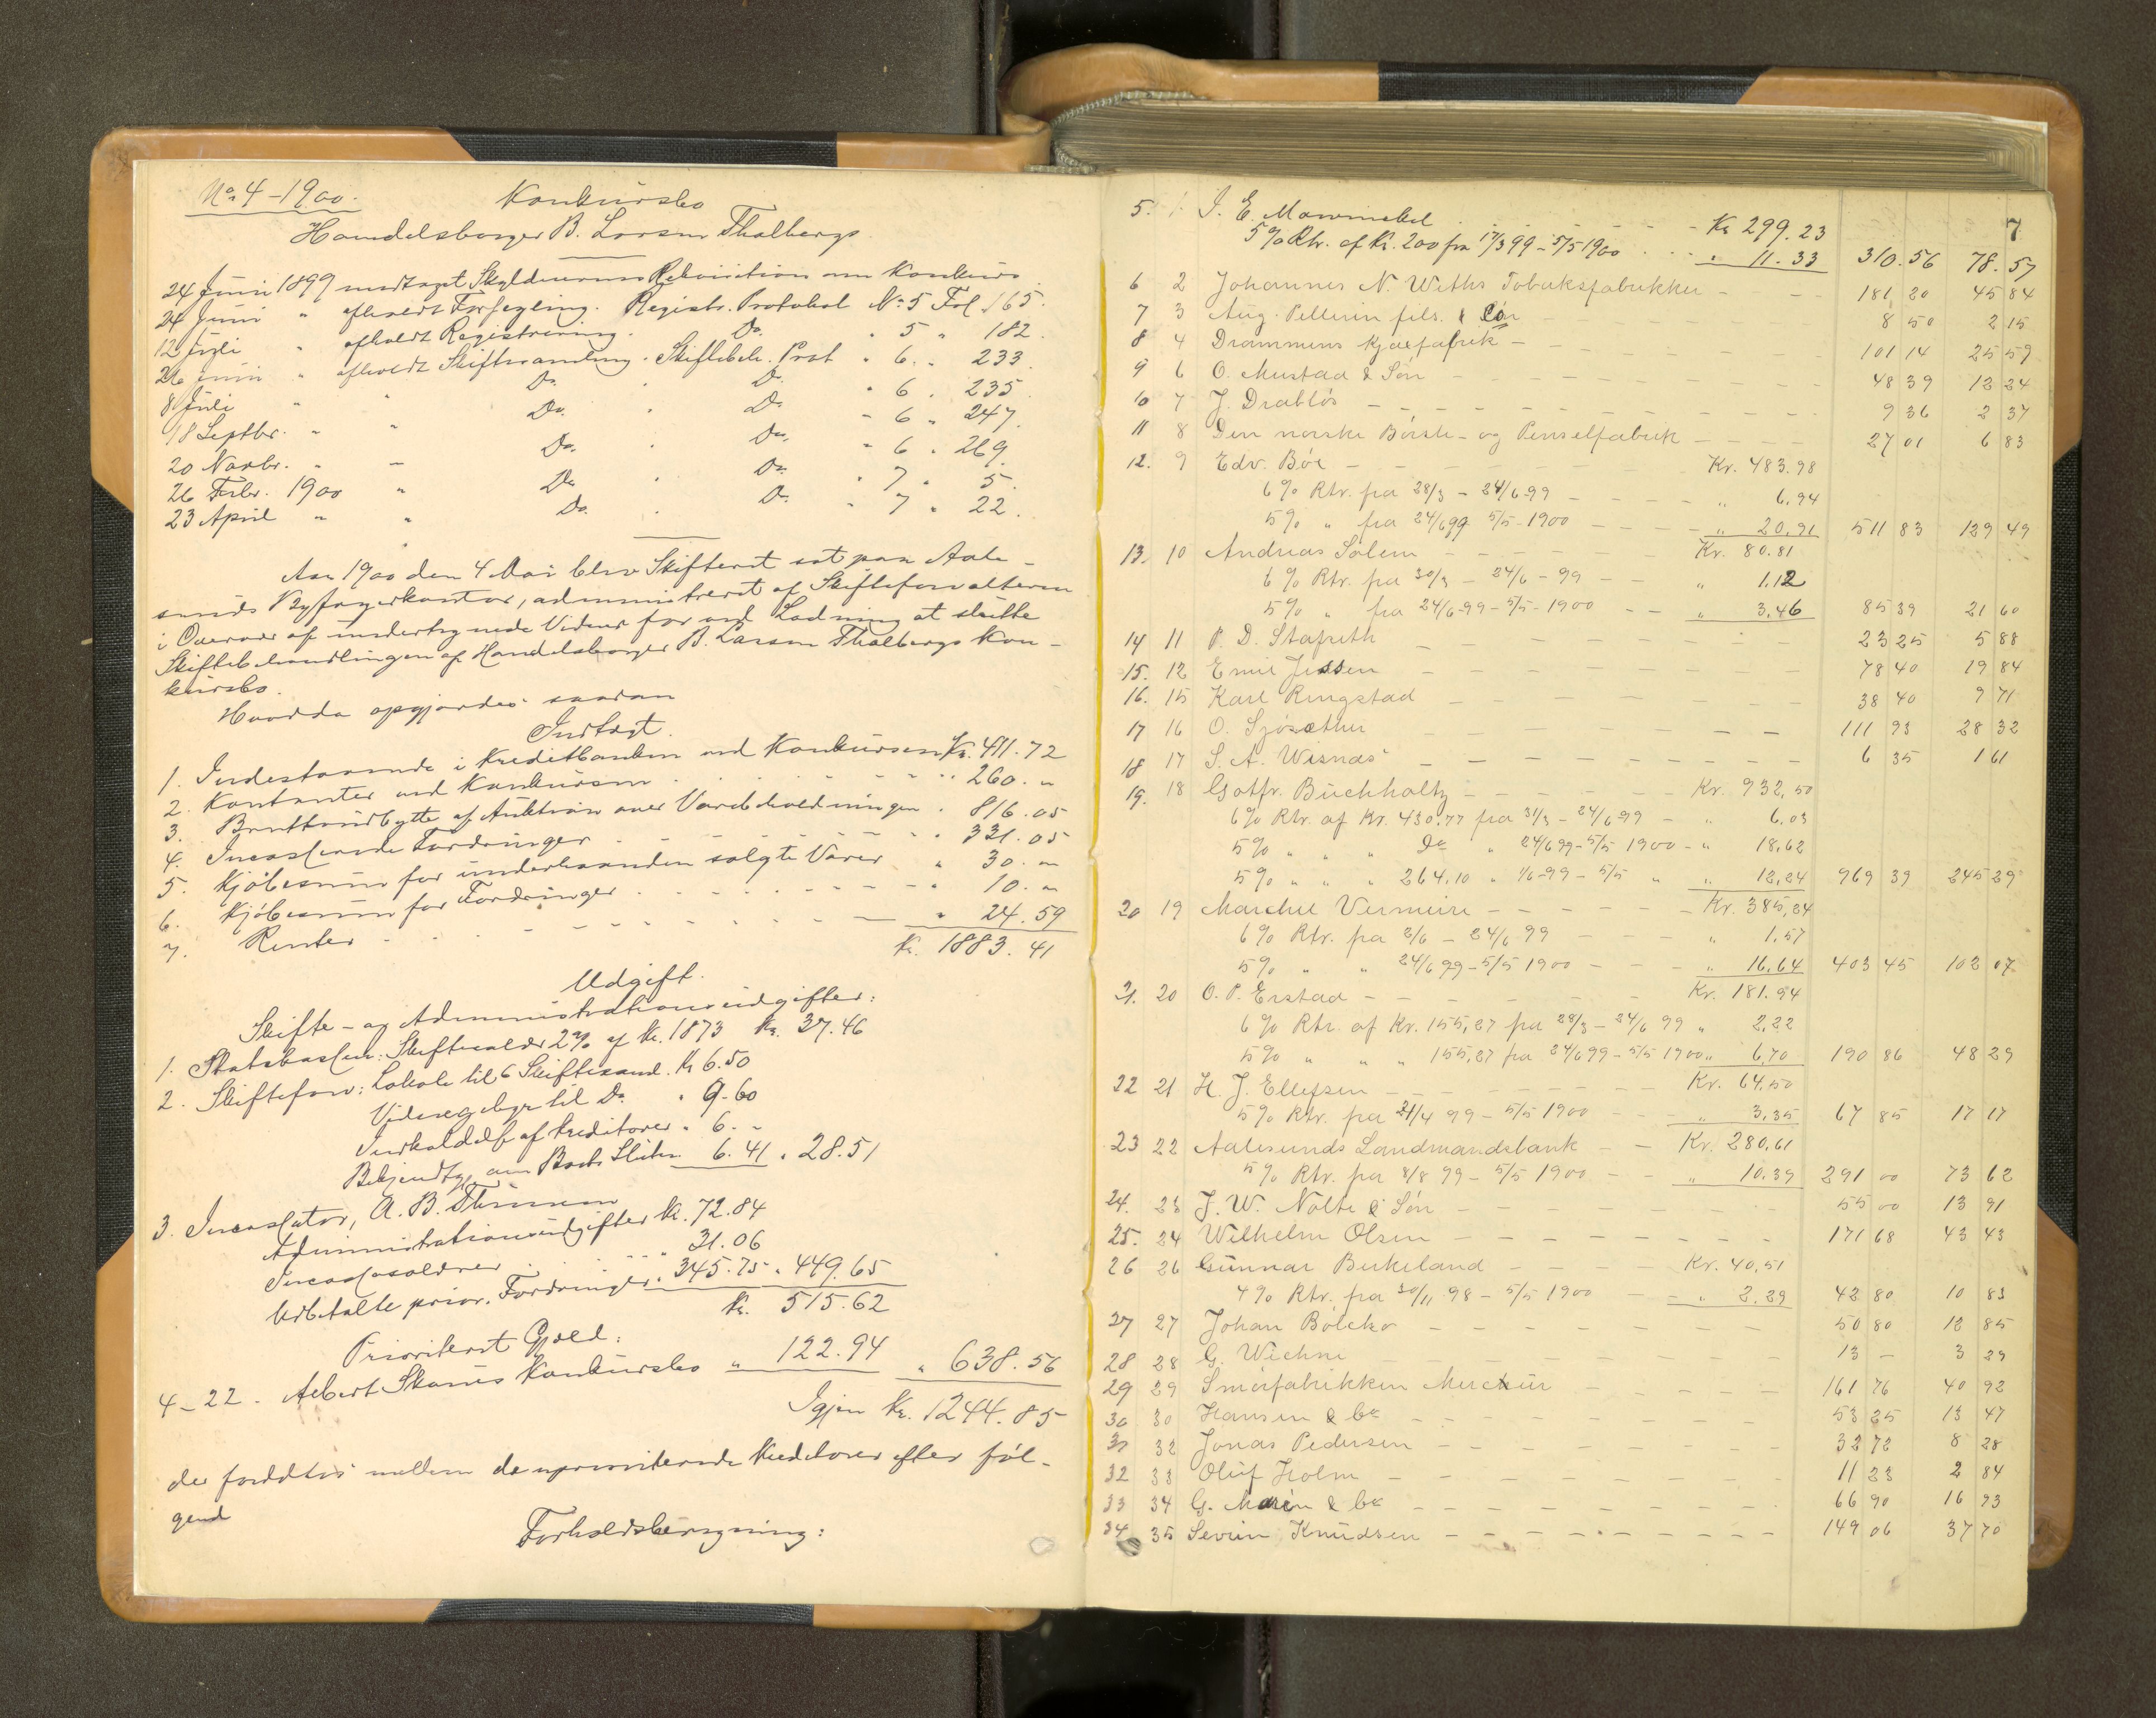 No 4 - 1900. Konkursbo
Handelsborger B. Larsen Thalbergs
24 Juni 1899 modtaget Skyldnerens Rekvisition om Konkurs
24 Juni " afholdt Forsegling. Registr. Protokol No 5 Fol. 165.
12 Juli " afholdt Registrering. Do. " 5 " 182.
26 Juni " afholdt Skiftesamling. Skiftebeh. Prot " 6. " 233.
8 Juli " " Do. " Do " 6 . 235.
18 Septbr. " " Do. " Do " 6 " 247.
20 Novbr. " – Do. " Do. " 6 . 269.
26 Febr. 1900 " Do. " Do. " 7 " 5.
23 April " " Do. " Do. " 7 " 22.
Aar 1900 den 4 Mai blev Skifteret sat paa Aale-
sunds Byfogedkontor, administreret af Skifteforvalteren
i Overvær af undertegnede Vidner for ved Lodning at slutte
Skiftebehandlingen af Handelsborger B. Larsen Thalbergs Kon-
kursbo.
Hvorda opgjordes saadan
Indtægt.
1. Indestaaende i Kreditbanken ved Konkursen Kr. 411.72
2. Kontanter ved Konkursen " 260. "
3. Bruttoudbytte af Auktion over Varebeholdningen " 816.05
4. Incasserede Fordringer " 331.05
5. Kjøbesum for underhaanden solgte Varer " 30. "
6. Kjøbesum for Fordringer " 10. "
7. Renter " 24.59
Kr. 1883.41
Udgift.
Skifte- og Administrationsudgifter:
1. Statskassen: Skiftesalær 2% af Kr. 1873 Kr. 37.46
2. Skifteforv: Lokale til 6 Skiftesaml. Kr 6.50
Vidnegebyr til Do " 9.60
Indkaldelse af Kreditorer " 6. "
Bekjendtg. om Boets Slutn. 6.41 " 28.51
3. Incassator, A. B.
Administrationsudgifter Kr. 72.84
Incassosalærer " 31.06
Udbetalte prior. Fordringer " 345.75 " 449.65
Kr. 515.62
Prioriteret Gjæld:
4-22. Albert Skarres Konkursbo " 122.94 " 638.56
Igjen Kr. 1244.85
der fordeltes mellem de uprioriterede Kreditorer efter føl-
gende
Forholdsberegning:
7
5. 1. I. E. Mowinckel Kr 299.23
5% Rtr. af Kr. 200 fra 17/3 99 - 5/5 1900 " 11.33 310.56 78.57
6 2 Johannes N. Withs Tobaksfabrikker 181 20 45 84
7 3 Aug. Pellerin fils. & Co 8 50 2 15
8 4 Drammens Kjæxfabrik 101 14 25 59
9 6 O. Mustad & Søn 48 39 12 24
10 7 J. Drabløs 9 36 2 37
11 8 Den norske Børste- og Penselfabrik 27 01 6 83
12. 9 Edv. Bøe Kr. 483.98
6% Rtr. fra 28/3 - 24/6 99 " 6.94
5% " fra 24/6 99 5/5 - 1900 " 20.91 511 83 129 49
13. 10 Andreas Solem Kr. 80.81
6% Rtr. fra 30/3 - 24/6 - 99 " 1.12
5% " fra 24/6 99 - 5/5 - 1900 " 3.46 85 39 21 60
14 11 P. D. Stafseth 23 25 5 88
15. 12 Emil Jessen 78 40 19 84
16. 15 Karl Ringstad 38 40 9 71
17 16 O. Sjøsæther 111 93 28 32
18 17 S. A. Wisnæs 6 35 1 61
19. 18 Gotfr. Buchholtz Kr. 932,50
6% Rtr. af Kr. 430.77 fra 31/3 - 24/6 99 " 6.03
5% " " " Do " 24/6 99 - 5/5 1900 " 18.62
5% " " " 264.10 " 1/6 - 99 - 5/5 " " 12,24 969 39 245 29
20 19 Marchel Vermeire Kr. 385,24
6% Rtr. fra 2/6 - 24/6 99 " 1.57
5% " " 24/6 99 - 5/5 1900 " 16.64 403 45 102 07
21. 20 O. P. Erstad Kr. 181.94
6% Rtr. af Kr. 155,27 fra 28/3 - 24/6 99 " 2,22
5% " " " 155,27 fra 24/6 99 - 5/5 1900 " 6,70 190 86 48 29
22 21 H. J. Ellefsen Kr. 64.50
5% Rtr. fra 21/4 99 - 5/5 1900 " 3.35 67 85 17 17
23 22 Aalesunds Landmandsbank Kr. 280,61
5% Rtr. fra 8/8 99 - 5/5 1900 " 10.39 291 00 73 62
24. 23 J. W. Nolte & Søn 55 00 13 91
25. 24 Wilhelm Olsen 171 68 43 43
26 26 Gunnar Birkeland Kr. 40,51
4% Rtr. fra 30/11 98 - 5/5 1900 " 2.29 42 80 10 83
27 27 Johan Bölcke 50 80 12 85
28 28 G. Wiehne 13 - 3 29
29 29 Smørfabrikken Merkur 161 76 40 92
30 30 Hansen & Co 53 25 13 47
31 32 Jonas Pedersen 32 72 8 28
32 33 Oluf Holm 11 23 2 84
33 34 G. & Co 66 90 16 93
34 35 Severin Knudsen 149 06 37 70